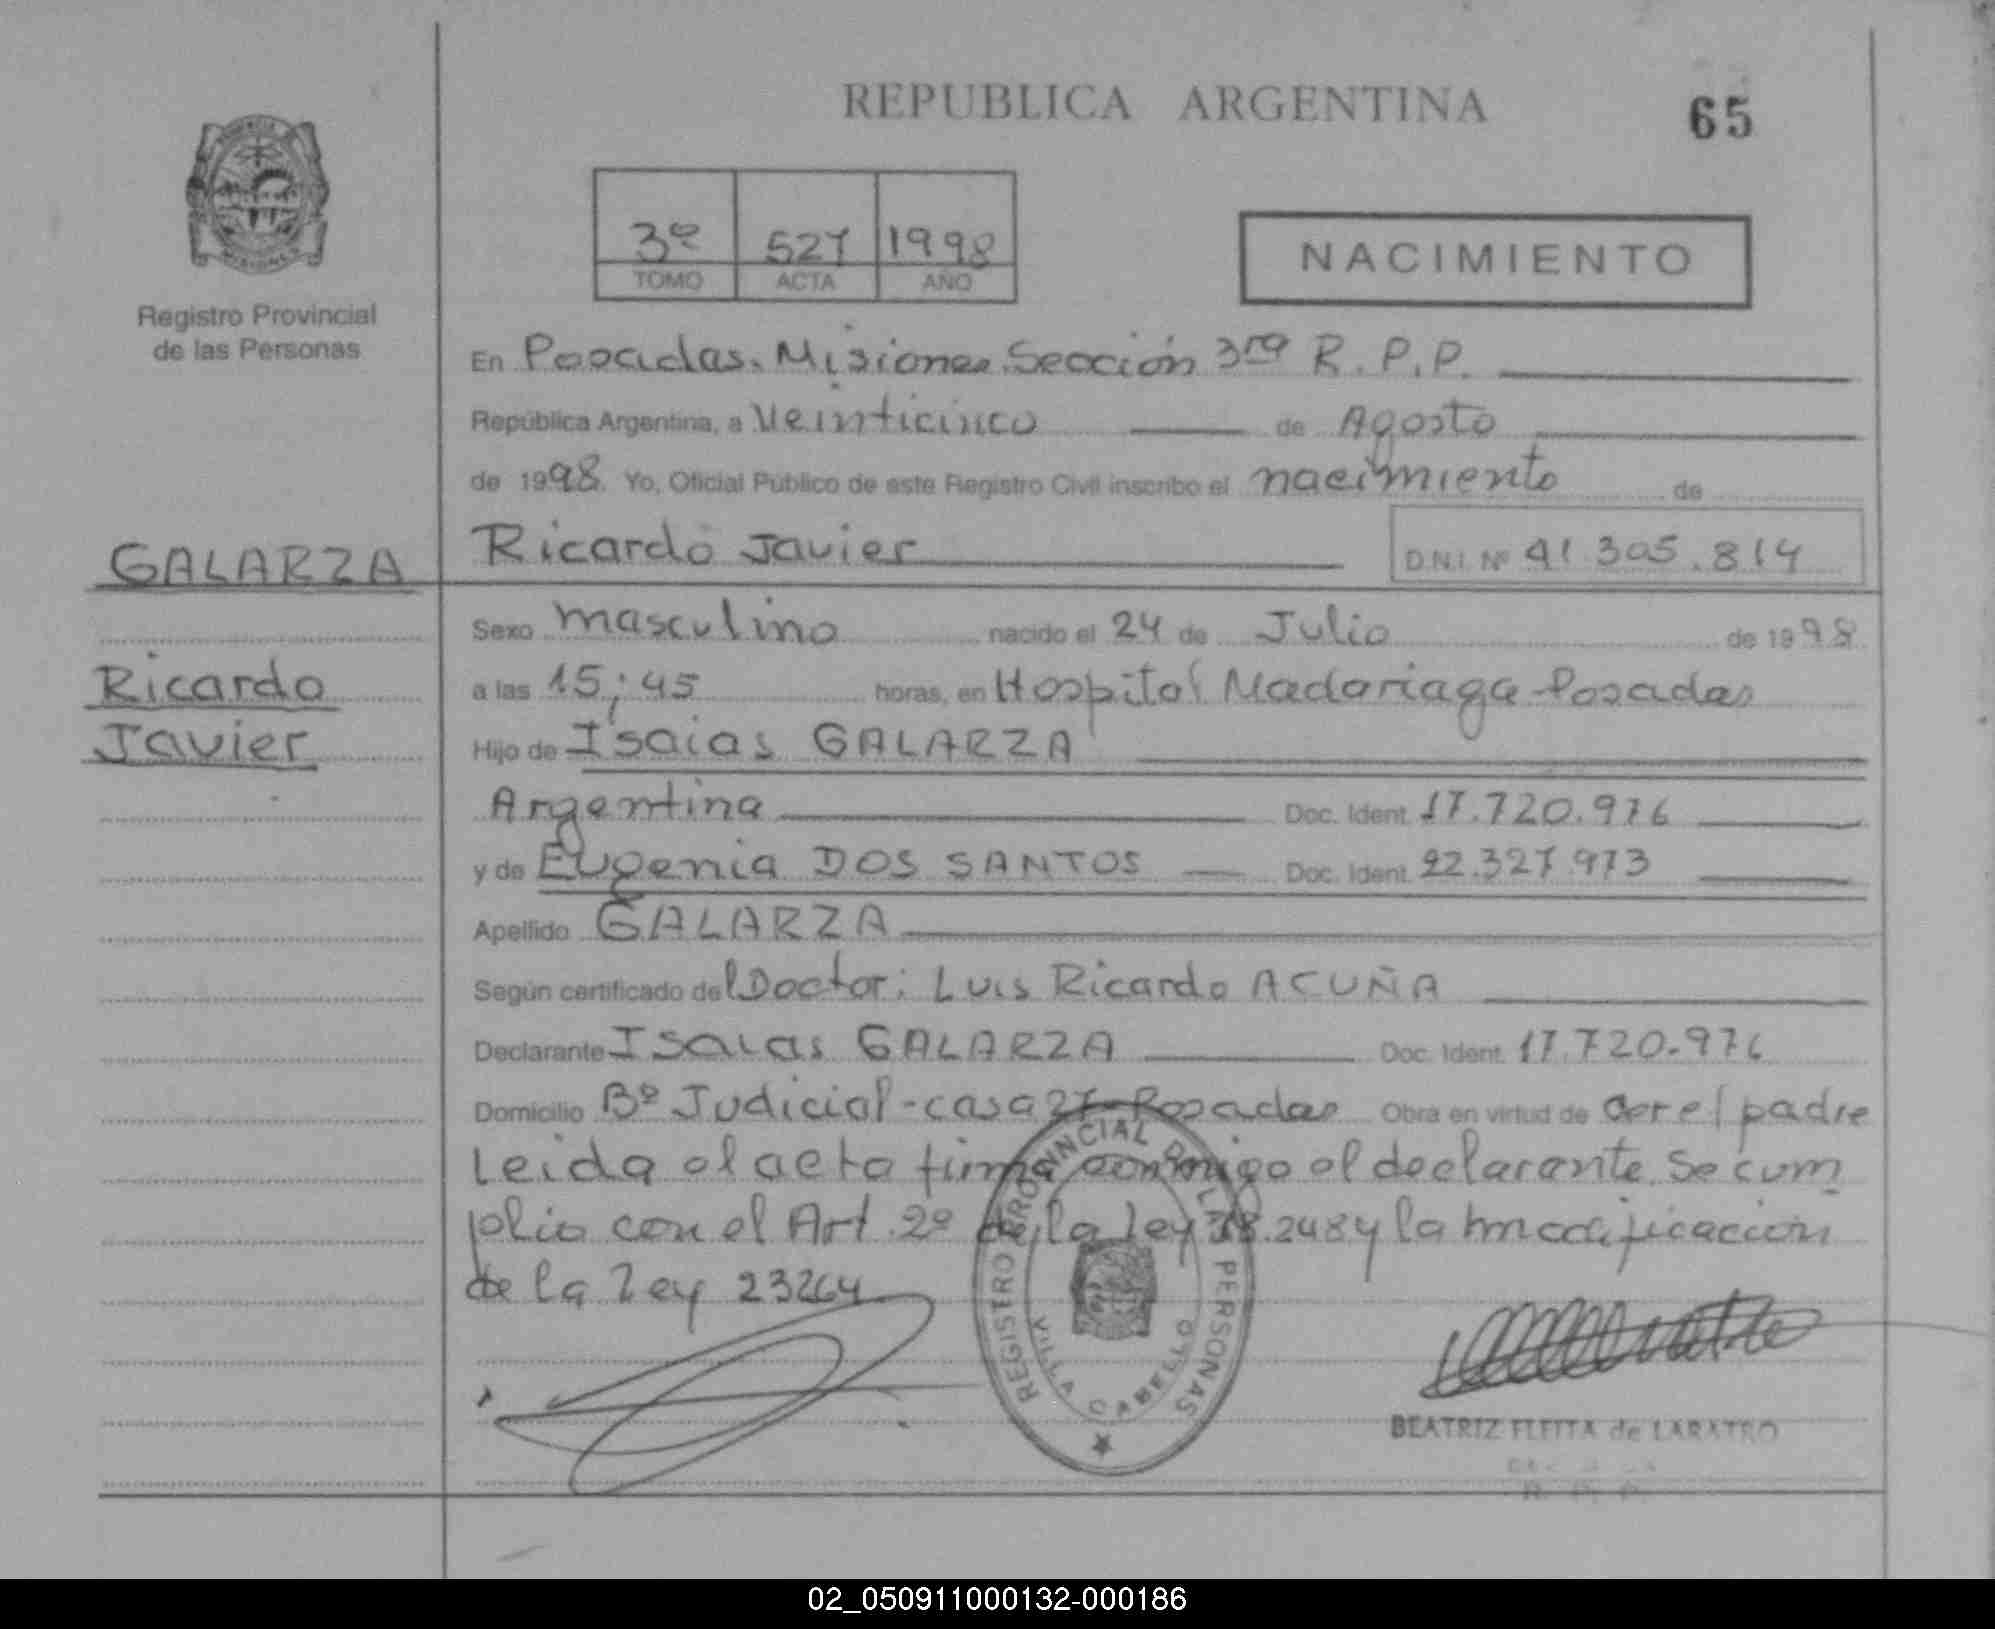 REPUBLICA ARGENTINA
65
3º 527 1998
TOMO ACTA AÑO
NACIMIENTO
Registro Provincial
de las Personas
En Posadas. Misiones. Sección 3ra R.P.P.
República Argentina, a Veinticinco de Agosto
de 1998. Yo, Oficial Público de este Registro Civil inscribo el nacimiento de
GALARZA
Ricardo Javier
D.N.I. Nº 41.305.814
Sexo masculino nacido el 24 de Julio de 1998
Ricardo
a las 15;45 horas, en Hospital Madariaga-Posadas
Javier
Hijo de Isaias GALARZA
Argentina Doc. Ident. 17.720.976
y de Eugenia DOS SANTOS Doc. Ident. 22.327.973
Apellido GALARZA
Según certificado del Doctor: Luis Ricardo ACUÑA
Declarante Isaias GALARZA Doc. Ident. 17.720.976
Domicilio Bº Judicial-casa 27-Posadas Obra en virtud de ser el padre
Leida el acta firma conmigo el declarante. Se cum
plio con el Art. 2º de la ley 18.248 y la modificacion
de la ley 23264
REGISTRO PROVINCIAL DE LAS PERSONAS
VILLA CABELLO
BEATRIZ FLEITA de LARATRO
R. P. P.
02_050911000132-000186